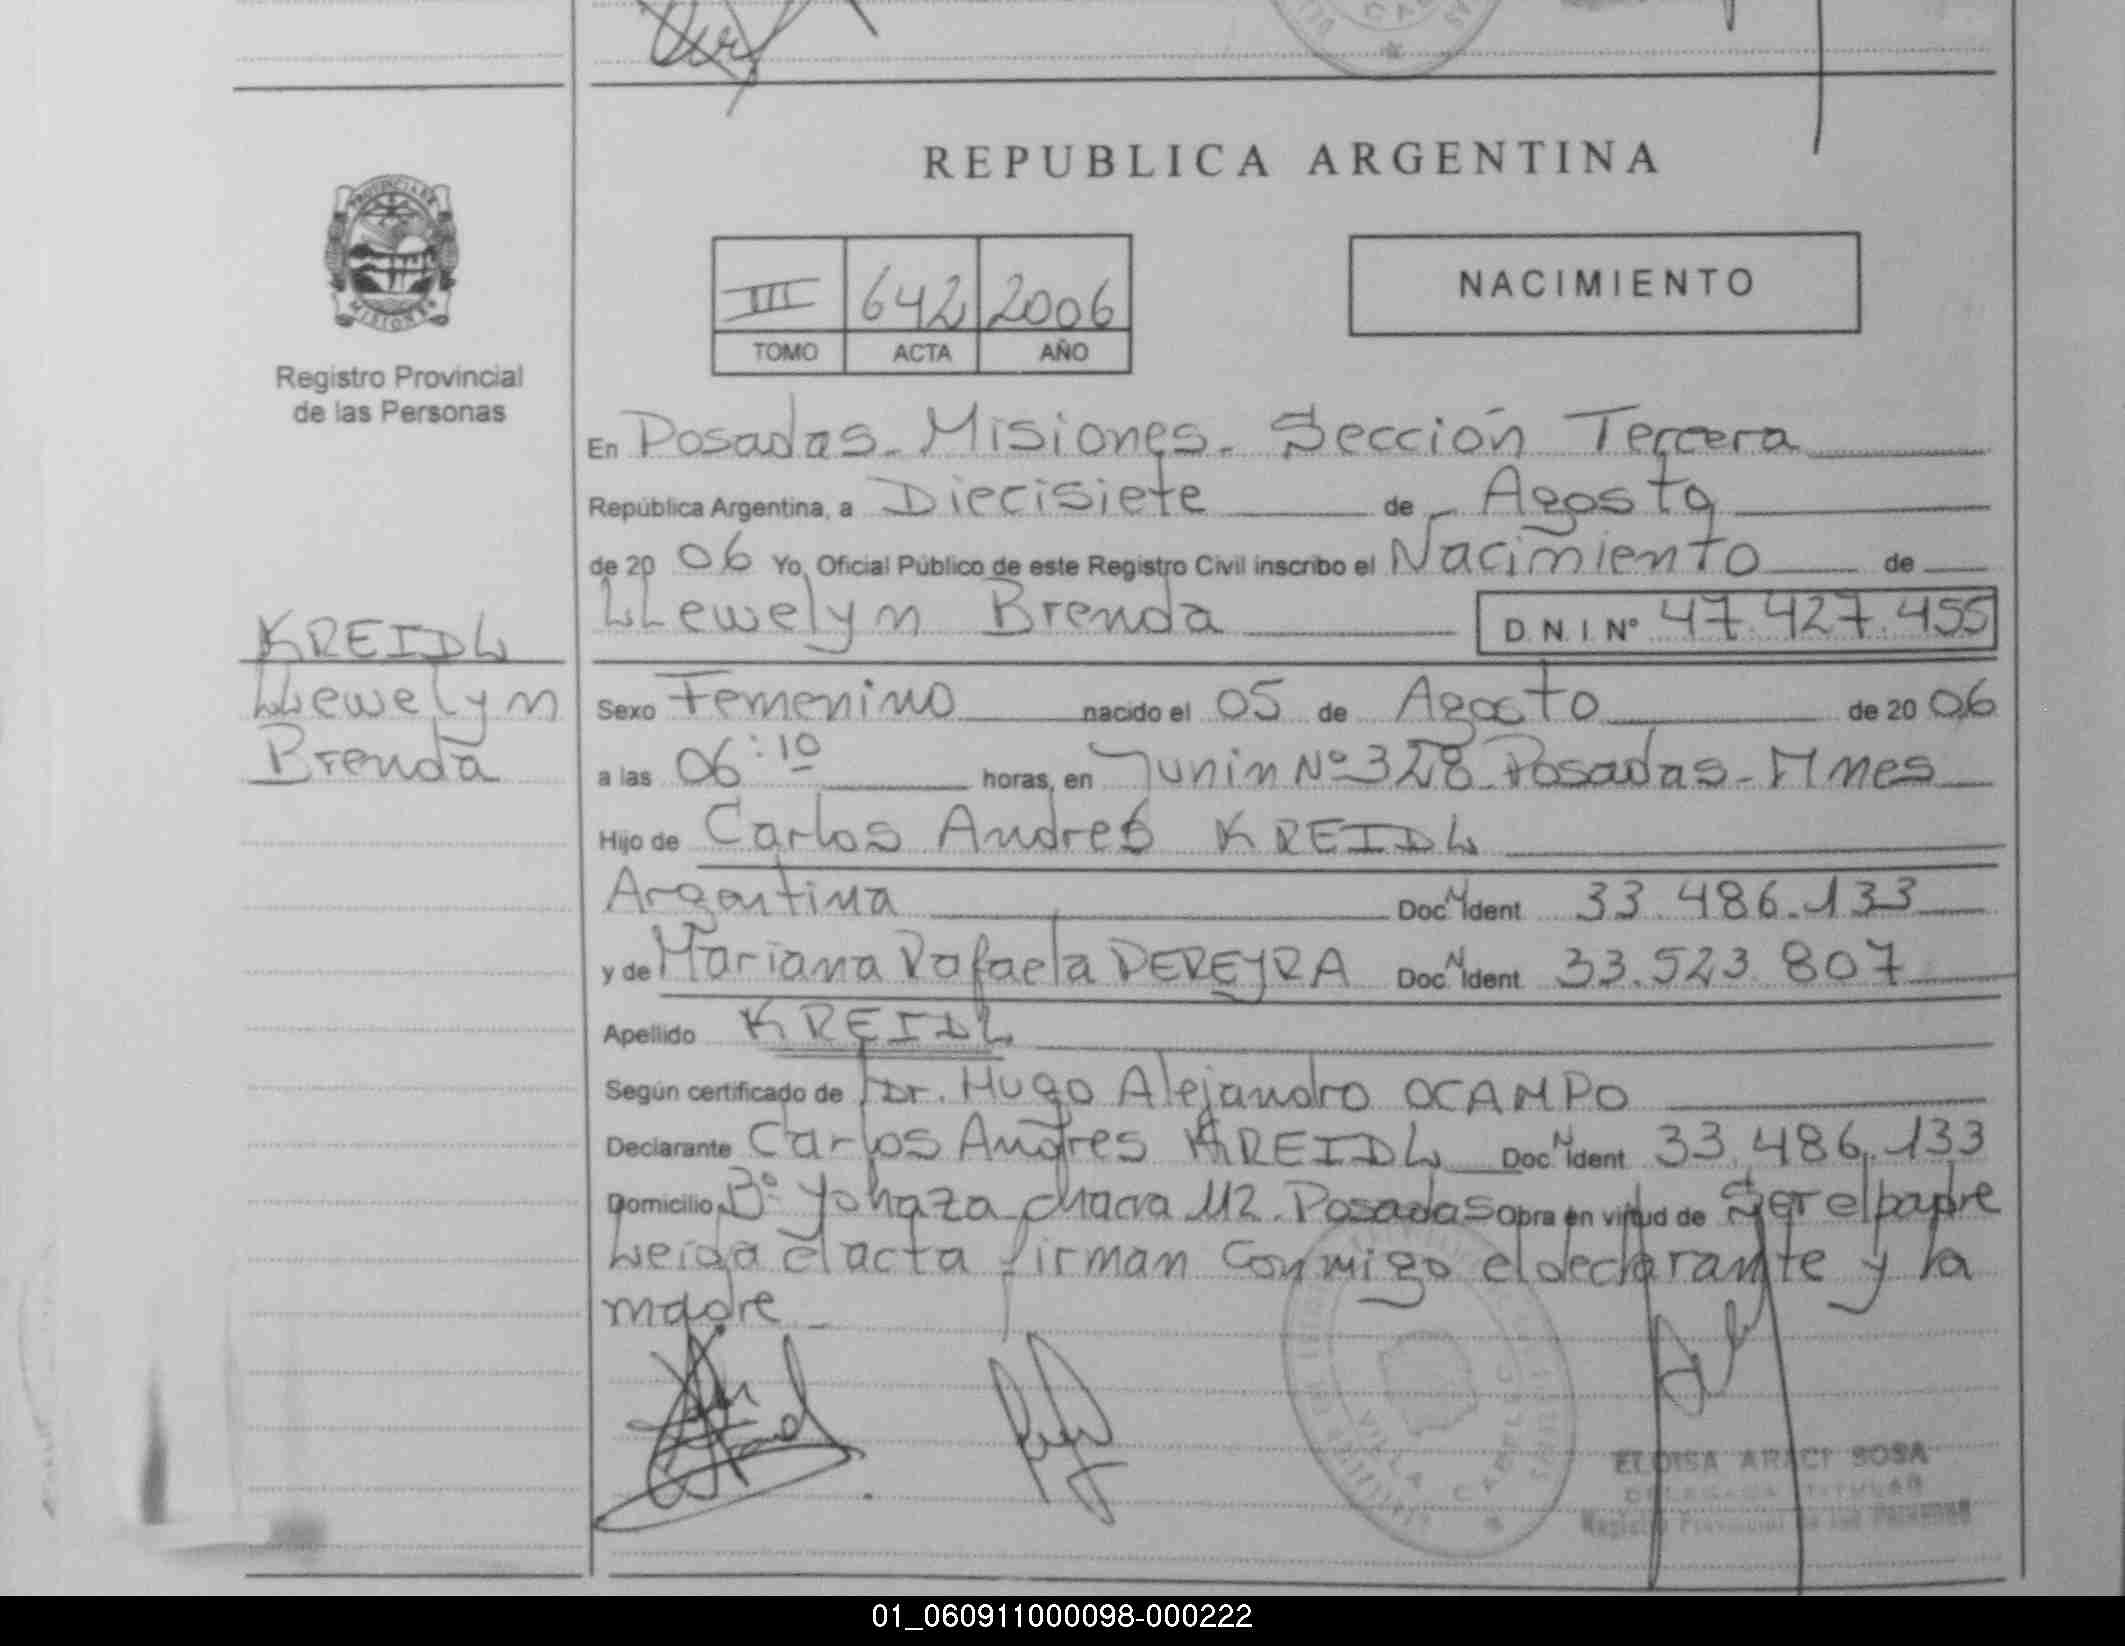 REPUBLICA ARGENTINA
PROVINCIA DE
MISIONES
Registro Provincial
de las Personas
III 642 2006
TOMO ACTA AÑO
NACIMIENTO
En Posadas - Misiones - Sección Tercera
República Argentina, a Diecisiete de Agosto
de 20 06 Yo, Oficial Público de este Registro Civil inscribo el Nacimiento de
LLewelyn Brenda D.N.I. Nº 47.427.455
KREIDL
LLewelyn
Brenda
Sexo Femenino nacido el 05 de Agosto de 20 06
a las 06:10 horas, en Junin Nº 328 Posadas - Mnes
Hijo de Carlos Andres KREIDL
Argentina Doc N Ident 33.486.133
y de Mariana Rafaela PEREYRA Doc N Ident 33.523.807
Apellido KREIDL
Según certificado de Dr. Hugo Alejandro OCAMPO
Declarante Carlos Andres KREIDL Doc N Ident 33.486.133
Domicilio Bº Yohaza chacra 112 Posadas Obra en virtud de Ser el padre
Leida el acta firman conmigo el declarante y la
madre
VILLA CABELLO
ELOISA ARACI SOSA
DELEGADA TITULAR
Registro Provincial de las Personas
01_060911000098-000222